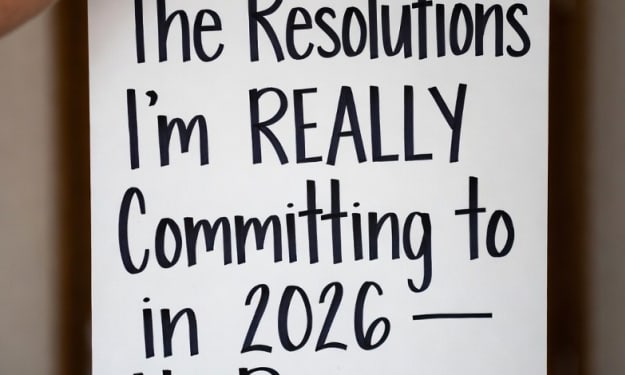 The Resolutions
I'm REALLY
Committing to
in 2026 —